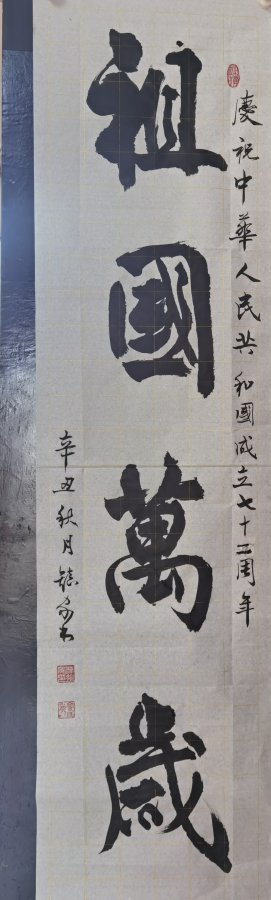 慶祝中華人民共和國成立七十二周年
祖國萬歲
辛丑秋月